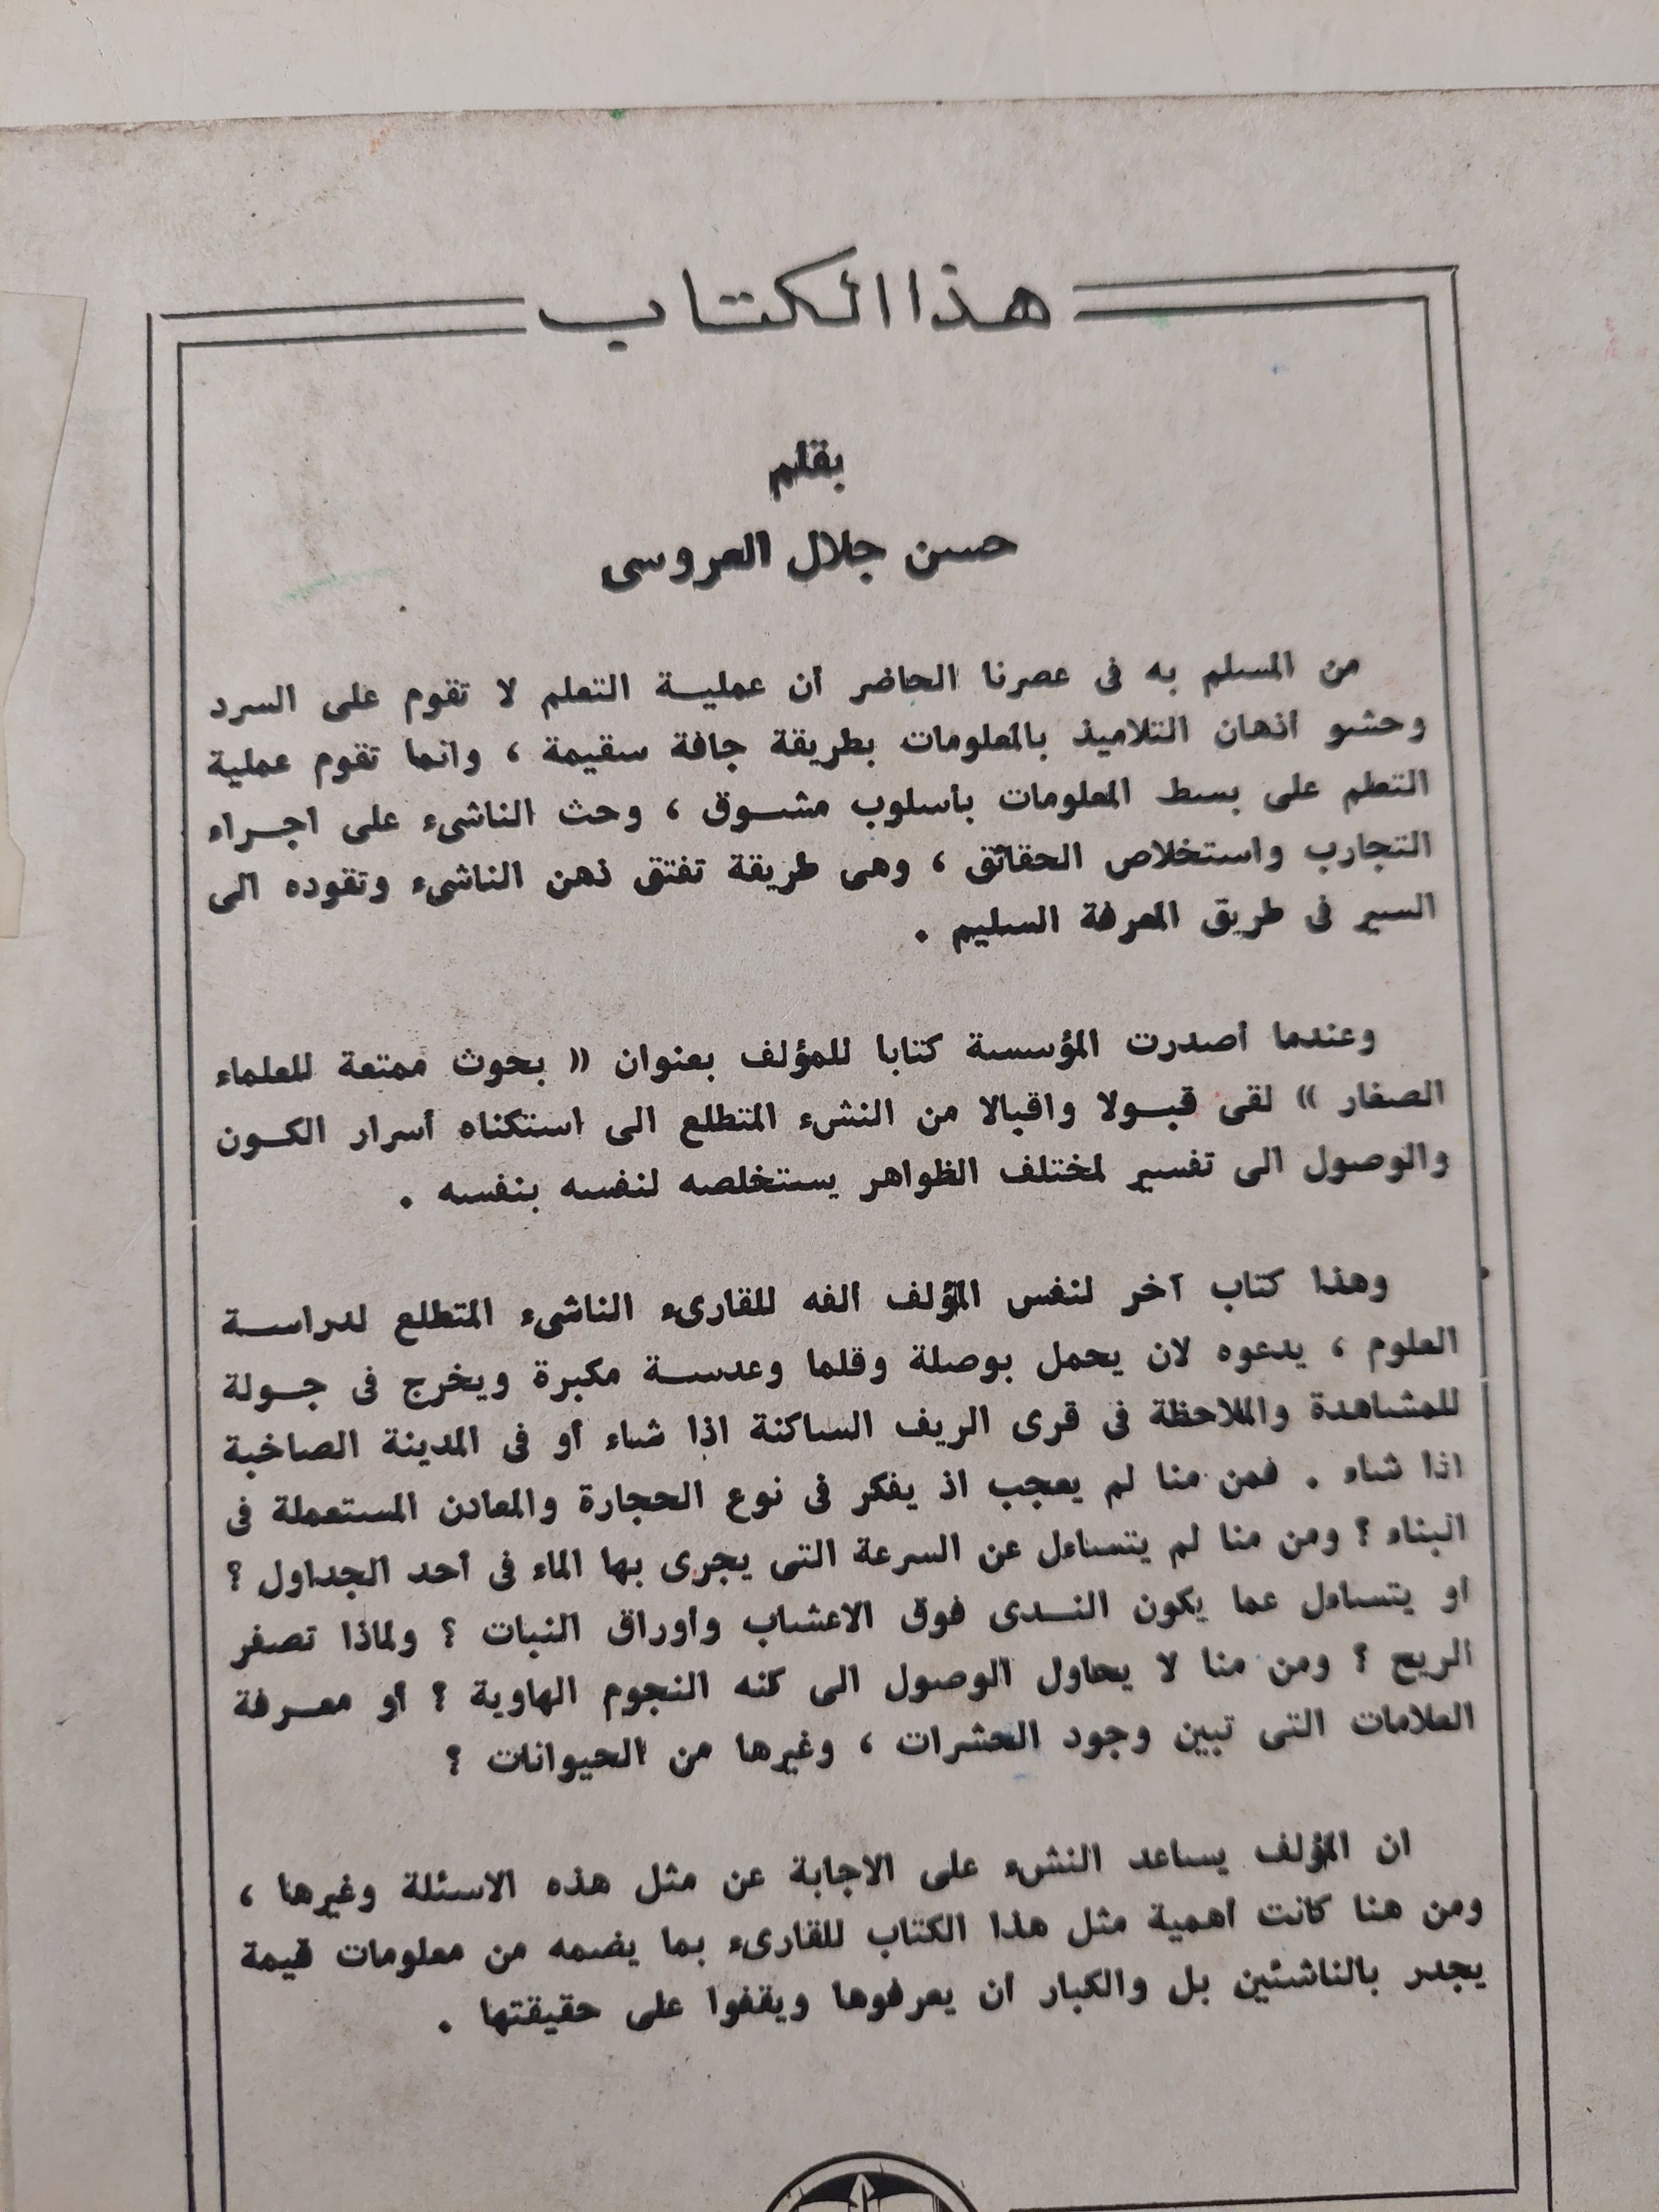 هذا الكتاب
بقلم
حسن جلال العروسى
من المسلم به فى عصرنا الحاضر أن عمليـة التعلم لا تقوم على السرد
وحشو أذهان التلاميذ بالمعلومات بطريقة جافة سقيمة ، وانما تقوم عملية
التعلم على بسط المعلومات بأسلوب مشـوق ، وحث الناشىء على اجـراء
التجارب واستخلاص الحقائق ، وهى طريقة تفتق ذهن الناشىء وتقوده الى
السير فى طريق المعرفة السليم .
وعندما أصدرت المؤسسة كتابا للمؤلف بعنوان « بحوث ممتعة للعلماء
الصغار » لقى قبـولا واقبالا من النشء المتطلع الى استكناه أسرار الكـون
والوصول الى تفسير لمختلف الظواهر يستخلصه لنفسه بنفسه .
وهذا كتاب آخر لنفس المؤلف ألفه للقارىء الناشىء المتطلع لدراسـة
العلوم ، يدعوه لان يحمل بوصلة وقلما وعدسـة مكبرة ويخرج فى جـولة
للمشاهدة والملاحظة فى قرى الريف الساكنة اذا شاء أو فى المدينة الصاخبة
اذا شاء . فمن منا لم يعجب اذ يفكر فى نوع الحجارة والمعادن المستعملة فى
البناء ؟ ومن منا لم يتساءل عن السرعة التى يجرى بها الماء فى أحد الجداول ؟
أو يتساءل عما يكون النـدى فوق الاعشاب وأوراق النبات ؟ ولماذا تصفر
الريح ؟ ومن منا لا يحاول الوصول الى كنه النجوم الهاوية ؟ أو معـرفة
العلامات التى تبين وجود الحشرات ، وغيرها من الحيوانات ؟
ان المؤلف يساعد النشء على الاجابة عن مثل هذه الاسئلة وغيرها ،
ومن هنا كانت أهمية مثل هذا الكتاب للقارىء بما يضمه من معلومات قيمة
يجدر بالناشئين بل والكبار أن يعرفوها ويقفوا على حقيقتها .